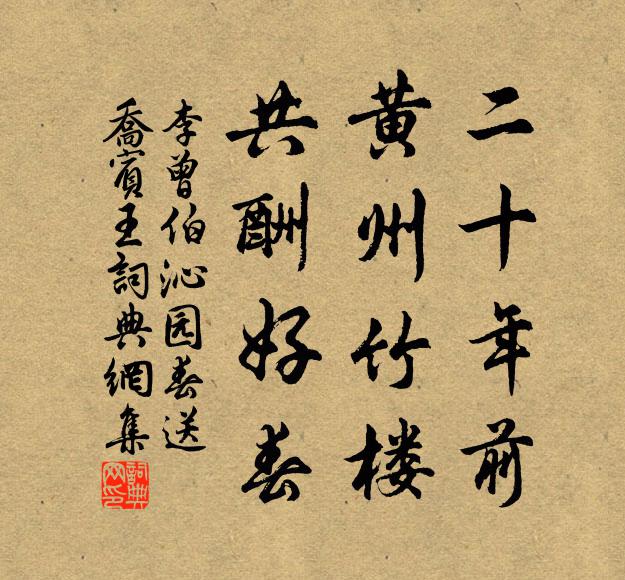 二十年前
黄州竹楼
共酬好春
李曾伯沁园春送
喬賓王詞典網集
詞典网印